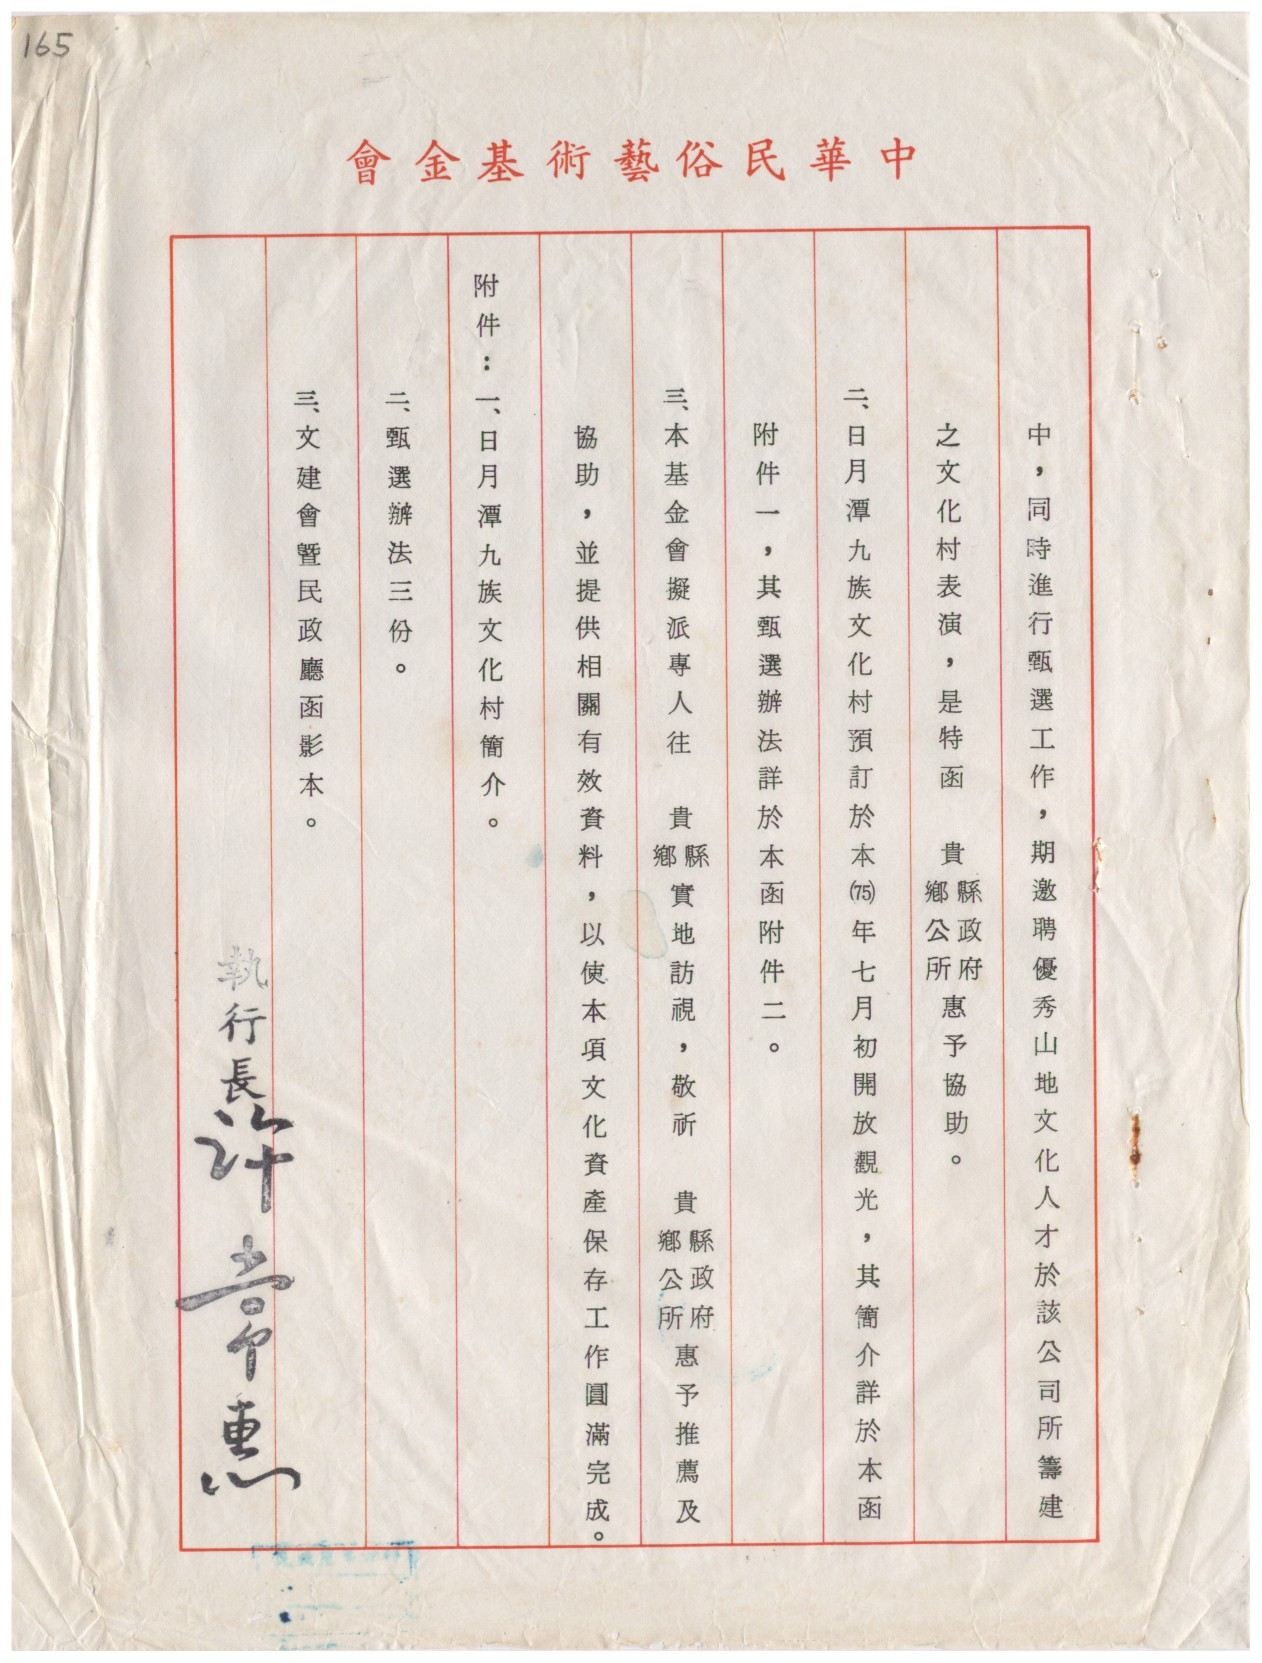 165
中華民俗藝術基金會
中，同時進行甄選工作，期邀聘優秀山地文化人才於該公司所籌建
之文化村表演，是特函　貴縣政府鄉公所惠予協助。
二、日月潭九族文化村預訂於本(75)年七月初開放觀光，其簡介詳於本函
附件一，其甄選辦法詳於本函附件二。
三、本基金會擬派專人往　貴縣鄉實地訪視，敬祈　貴縣政府鄉公所惠予推薦及
協助，並提供相關有效資料，以使本項文化資產保存工作圓滿完成。
附件：一、日月潭九族文化村簡介。
二、甄選辦法三份。
三、文建會暨民政廳函影本。
執行長許常惠